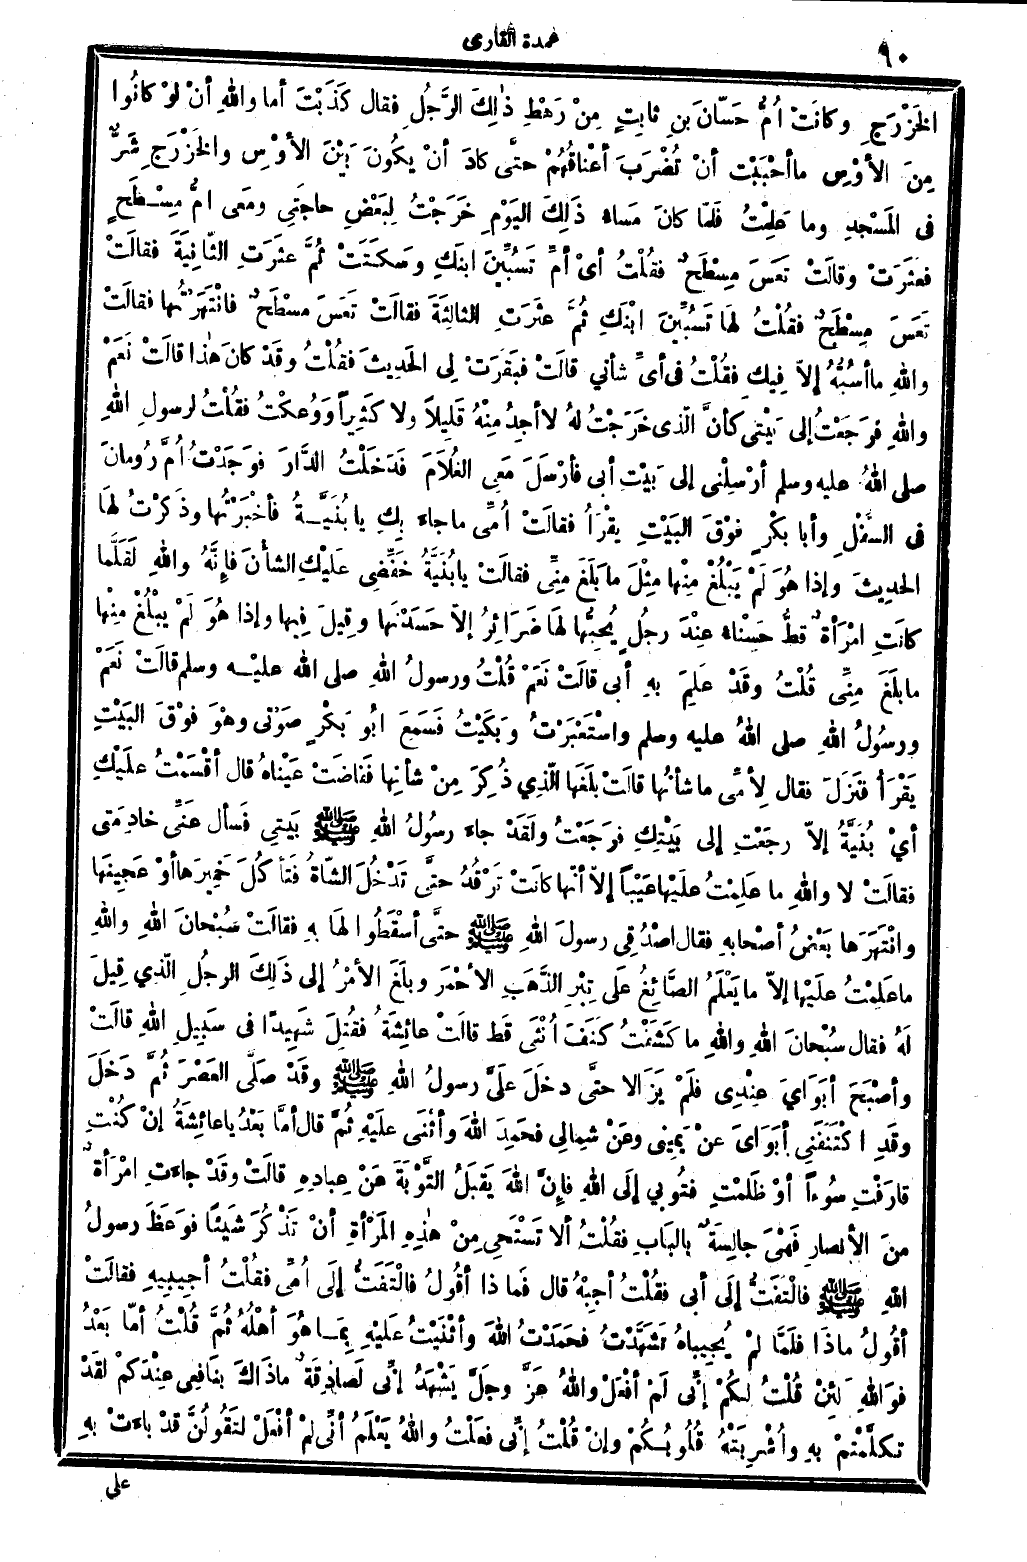 ٩٠
عمدة القارى
الخَزْرَجِ وكانَتْ أُمُّ حَسّانَ بنِ ثابِتٍ مِنْ رَهْطِ ذٰلِكَ الرَّجُلِ فقال كَذَبْتَ أما واللهِ أنْ لوْ كانُوا
مِنَ الأوْسِ ماأحْبَبْتَ أنْ تُضْرَبَ أعْناقُهُمْ حتَّى كادَ أنْ يكُونَ بَيْنَ الأوْسِ والخَزْرَجِ شَرٌّ
فى المَسْجِدِ وما عَلِمْتُ فَلمّا كانَ مَساءُ ذَلِكَ اليَوْمِ خَرَجْتُ لِبَعْضِ حاجَتِي ومَعى امُّ مِسْطَحٍ
فعثَرَتْ وقالَتْ تَعَسَ مِسْطَحٌ فقُلْتُ أىْ أُمِّ تَسُبِّينَ ابنَكِ وسَكَتَتْ ثُمَّ عثَرَتِ الثّانِيَةَ فقالَتْ
تَعَسَ مِسْطَحٌ فقُلْتُ لها تَسُبِّينَ ابْنَكِ ثُمَّ عثَرَتِ الثالِثَةَ فقالَتْ تَعَسَ مسْطَحٌ فانْتَهَرْتُها فقالَتْ
واللهِ ماأسُبُّهُ إلاّ فِيكِ فقُلْتُ فى أىِّ شأنِي قالَتْ فبَقَرَتْ لِى الحَدِيثَ فقُلْتُ وقَدْ كانَ هٰذا قالَتْ نَعَمْ
واللهِ فرَجَعْتُ إلى بَيْتِي كأنَّ الّذى خَرَجْتُ لهُ لاأجِدُ مِنْهُ قَلِيلاً ولا كَثِيراً وَوُعِكْتُ فقُلْتُ لرسولِ اللهِ
صلى اللهُ عليه وسلم أرْسِلْنِى إلى بَيْتِ أبى فأرْسَلَ مَعِى الغُلاَمَ فَدَخَلْتُ الدَّارَ فوَجَدْتُ أُمَّ رُومانَ
فى السفْلِ وأبا بَكْرٍ فوْقَ البَيْتِ يقْرَأُ فقالَتْ أُمِّى ماجاء بِكِ يابُنَيَّةُ فأخْبَرْتُها وذَكَرْتُ لهَا
الحدِيثَ وإذا هُوَ لَمْ يَبْلُغْ مِنْها مِثْلَ مابَلَغَ مِنِّى فقالَتْ يابُنَيَّةُ خَفِّضِى عَلَيْكِ الشأْنَ فإِنَّهُ واللهِ لَقَلَّما
كانَتِ امْرَأةٌ قطُّ حَسْناء عِنْدَ رجُلٍ يُحِبُّها لهَا ضَرَائِرُ إلاّ حَسَدْنَها وقِيلَ فِيها وإذا هُوَ لَمْ يبْلُغْ مِنْها
مابَلَغَ مِنِّى قُلْتُ وقَدْ عَلِمَ بهِ أبى قالَتْ نَعَمْ قُلْتُ ورسولُ اللهِ صلى الله عليه وسلم قالَتْ نَعَمْ
ورسُولُ اللهِ صلى اللهُ عليه وسلم واسْتَعْبَرْتُ وبَكَيْتُ فَسَمِعَ ابُو بَكْرٍ صَوْتِى وهْوَ فوْقَ البَيْتِ
يَقْرَأُ فنَزَلَ فقال لِأُمِّى ماشأنُها قالَتْ بلَغَها الّذِي ذُكِرَ مِنْ شأنِها ففَاضَتْ عَيْناهُ قال أقْسَمْتُ علَيْكِ
أيْ بُنَيَّةُ إلاّ رجَعْتِ إلى بَيْتِكِ فرَجَعْتُ ولَقَدْ جاء رسولُ اللهِ ﷺ بَيتِي فسألَ عَنِّى خادِمَتى
فقالَتْ لا واللهِ ما عَلِمْتُ علَيْها عَيْباً إلاّ أنّها كانَتْ تَرْقُدُ حتى تَدْخُلَ الشّاةُ فتَأْكُلَ خَمِيرَها أوْ عَجِينَها
وانْتَهَرَها بَعْضُ أصْحابِهِ فقال اصْدُقِى رسولَ اللهِ ﷺ حتَّى أسْقَطُوا لهَا بِهِ فقالَتْ سُبْحانَ اللهِ واللهِ
ماعَلِمْتُ علَيْها إلاّ مايَعْلَمُ الصَّائِغُ على تِبْرِ الذَّهَبِ الأحْمَرِ وبلَغَ الأمْرُ إلى ذَلِكَ الرجُلِ الّذِي قِيلَ
لَهُ فقال سُبْحانَ اللهِ واللهِ ما كَشَفْتُ كَنَفَ أُنْثَى قط قالَتْ عائِشَةُ فقُتِلَ شَهِيدًا فى سَبِيلِ اللهِ قالَتْ
وأصْبَحَ أبَوَايَ عِنْدِى فلَمْ يَزَالا حتَّى دخَلَ علَىَّ رسولُ اللهِ ﷺ وقَدْ صَلَّى العَصْرَ ثُمَّ دخَلَ
وقَدِ اكْتَنَفَنِى أبَوَاىَ عنْ يَمِينِى وعَنْ شِمالِي فحَمِدَ اللهَ وأثْنَى علَيْهِ ثُمَّ قال أمَّا بَعْدُ ياعائِشَةُ إنْ كُنْتِ
قارَفْتِ سُوءاً أوْ ظَلَمْتِ فتُوبِي إلَى اللهِ فإنَّ اللهَ يَقْبَلُ التَّوْبَةَ عَنْ عِبادِهِ قالَتْ وقَدْ جاءَتِ امْرَأةٌ
مِنَ الأنْصارِ فَهْىَ جالِسَةٌ بالبابِ فقُلْتُ ألا تَسْتَحِى مِنْ هٰذِهِ المَرْأةِ أنْ تَذْكُرَ شَيْئًا فوَعَظَ رسولُ
اللهِ ﷺ فالْتفَتُّ إلَى أبى فقُلْتُ أجِبْهُ قال فَماذا أقُولُ فالْتَفَتُّ إلَى أُمِّى فقُلْتُ أجِيبِيهِ فقالَتْ
أقُولُ ماذَا فلَمَّا لَمْ يُجِيباهُ تشَهَّدْتُ فحَمِدْتُ اللهَ وأثْنَيْتُ علَيْهِ بِمَا هُوَ أهْلُهُ ثُمَّ قُلْتُ أمّا بَعْدُ
فوَاللهِ لَئِنْ قُلْتُ لَكُمْ إنِّى لَمْ أفْعَلْ واللهُ عزَّ وجلَّ يَشْهَدُ إنِّى لَصادِقَةٌ ماذَاكَ بِنافِعِى عِنْدَكُمْ لقَدْ
تكلَّمْتُمْ بِهِ وأُشْرِبَتْهُ قُلُوبُكُمْ وإنْ قُلْتُ إنِّى فعَلْتُ واللهُ يَعْلَمُ أنِّى لمْ أفْعَلْ لتَقُولُنَّ قدْ باءَتْ بهِ
على